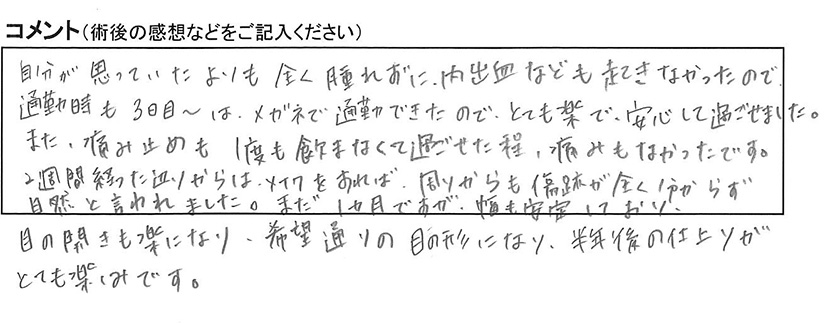 コメント(術後の感想などをご記入ください)
自分が思っていたよりも全く腫れずに、内出血なども起きなかったので、
通勤時も3日目〜は、メガネで通勤できたので、とても楽で、安心して過ごせました。
また、痛み止めも1度も飲まなくて過ごせた程、痛みもなかったです。
2週間経った辺りからは、メイクをすれば、周りからも傷跡が全く分からず
自然と言われました。まだ1ヵ月ですが、幅も安定しており、
目の開きも楽になり、希望通りの目の形になり、半年後の仕上りが
とても楽しみです。